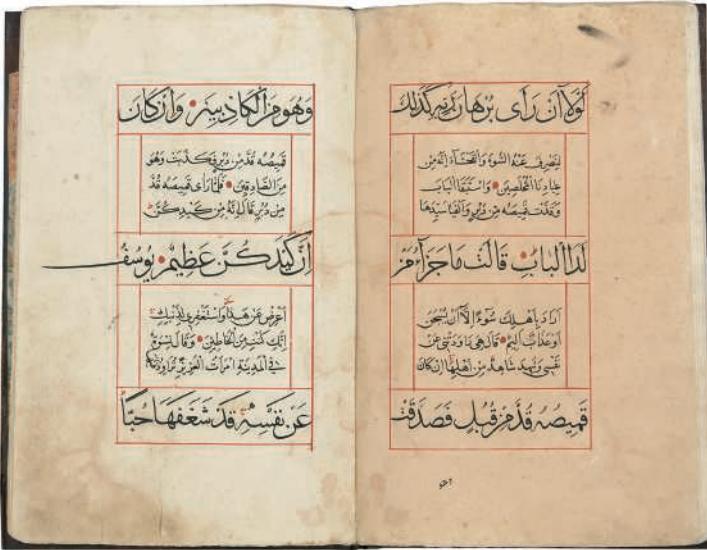 لولا أن رأى برهان ربه كذلك
لنصرف عنه السوء والفحشاء إنه من
عبادنا المخلصين • واستبقا الباب
وقدت قميصه من دبر وألفيا سيدها
لدا الباب • قالت ما جزاء من
أراد بأهلك سوءا إلا أن يسجن
أو عذاب أليم • قال هي راودتني عن
نفسي وشهد شاهد من أهلها إن كان
قميصه قد من قبل فصدقت
وهو من الكاذبين • وإن كان
قميصه قد من دبر فكذبت وهو
من الصادقين • فلما رأى قميصه قد
من دبر قال إنه من كيدكن
إن كيدكن عظيم • يوسف
أعرض عن هذا واستغفري لذنبك
إنك كنت من الخاطئين • وقال نسوة
في المدينة امرأت العزيز تراود
عن نفسه قد شغفها حبا